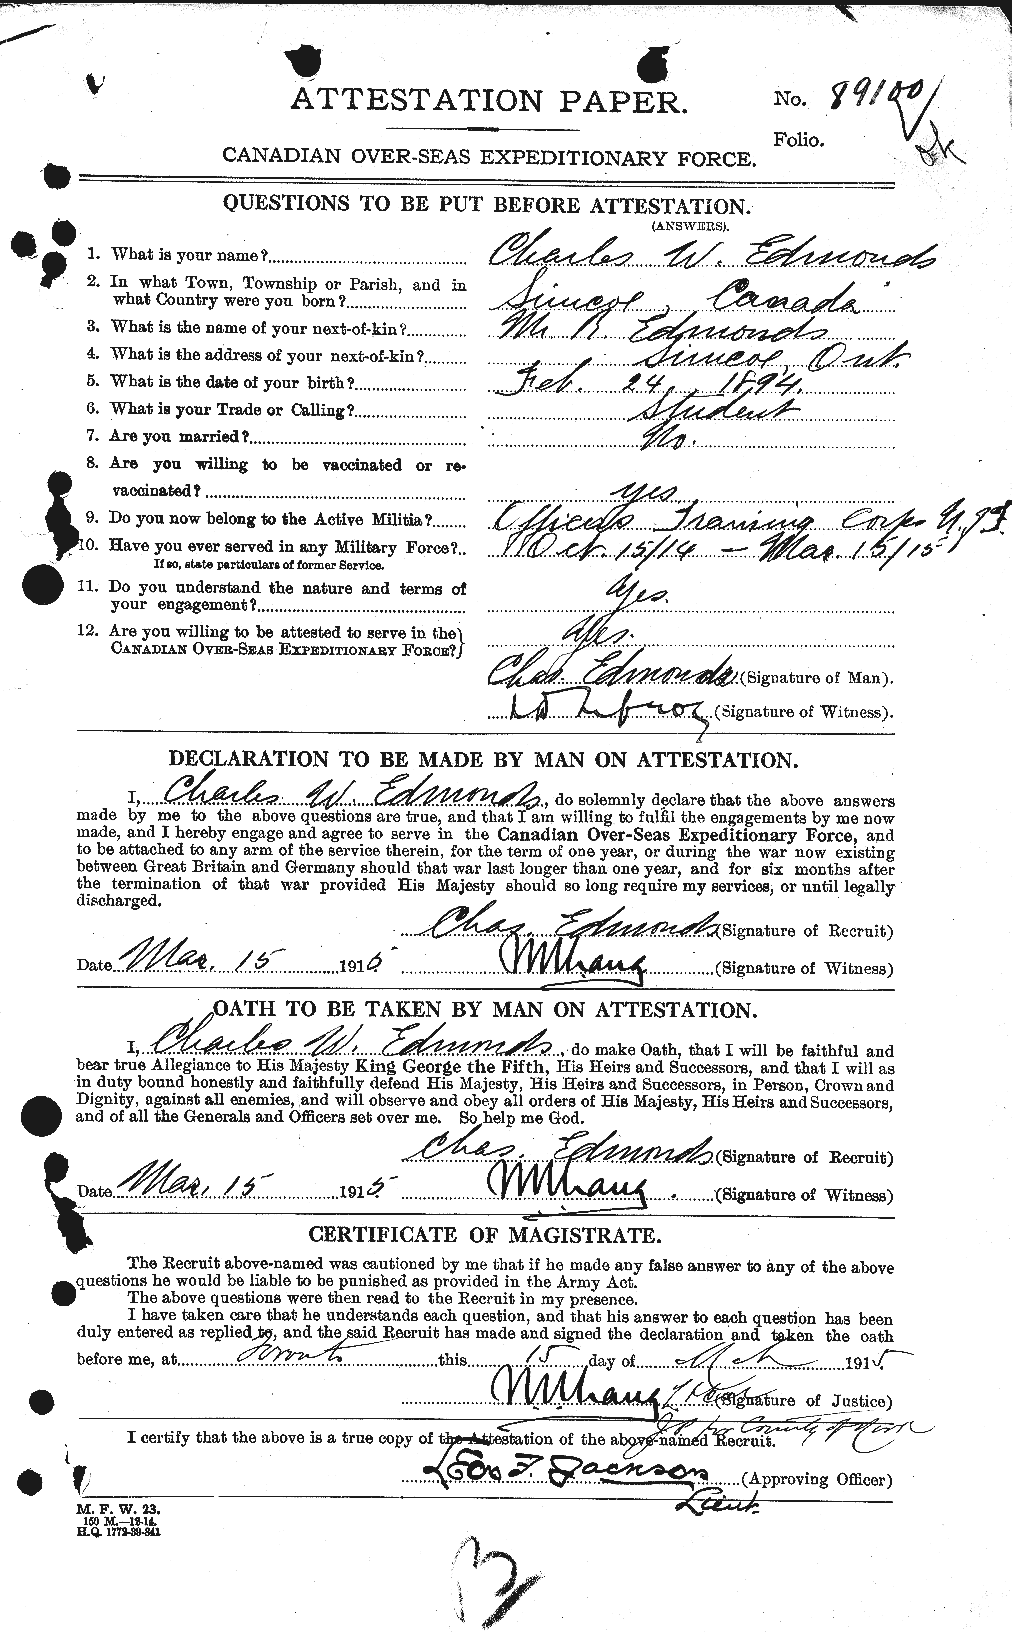 ATTESTATION PAPER.
No. 89100
Folio.
CANADIAN OVER-SEAS EXPEDITIONARY FORCE.
QUESTIONS TO BE PUT BEFORE ATTESTATION.
(ANSWERS).
1. What is your name? Charles W. Edmonds
2. In what Town, Township or Parish, and in
what Country were you born? Simcoe, Canada
3. What is the name of your next-of-kin? Mr R. Edmonds
4. What is the address of your next-of-kin? Simcoe, Ont.
5. What is the date of your birth? Feb. 24, 1894.
6. What is your Trade or Calling? Student
7. Are you married? No.
8. Are you willing to be vaccinated or re-
vaccinated? yes
9. Do you now belong to the Active Militia? Officers Training Corps
10. Have you ever served in any Military Force? Oct. 15/14 — Mar. 15/15
If so, state particulars of former Service.
11. Do you understand the nature and terms of
your engagement? Yes.
12. Are you willing to be attested to serve in the
CANADIAN OVER-SEAS EXPEDITIONARY FORCE? Yes.
Chas. Edmonds (Signature of Man).
(Signature of Witness).
DECLARATION TO BE MADE BY MAN ON ATTESTATION.
I, Charles W. Edmonds, do solemnly declare that the above answers
made by me to the above questions are true, and that I am willing to fulfil the engagements by me now
made, and I hereby engage and agree to serve in the Canadian Over-Seas Expeditionary Force, and
to be attached to any arm of the service therein, for the term of one year, or during the war now existing
between Great Britain and Germany should that war last longer than one year, and for six months after
the termination of that war provided His Majesty should so long require my services, or until legally
discharged.
Chas. Edmonds (Signature of Recruit)
Date Mar. 15 1915 (Signature of Witness)
OATH TO BE TAKEN BY MAN ON ATTESTATION.
I, Charles W. Edmonds, do make Oath, that I will be faithful and
bear true Allegiance to His Majesty King George the Fifth, His Heirs and Successors, and that I will as
in duty bound honestly and faithfully defend His Majesty, His Heirs and Successors, in Person, Crown and
Dignity, against all enemies, and will observe and obey all orders of His Majesty, His Heirs and Successors,
and of all the Generals and Officers set over me. So help me God.
Chas. Edmonds (Signature of Recruit)
Date Mar. 15 1915 (Signature of Witness)
CERTIFICATE OF MAGISTRATE.
The Recruit above-named was cautioned by me that if he made any false answer to any of the above
questions he would be liable to be punished as provided in the Army Act.
The above questions were then read to the Recruit in my presence.
I have taken care that he understands each question, and that his answer to each question has been
duly entered as replied to, and the said Recruit has made and signed the declaration and taken the oath
before me, at Toronto this 15 day of Mch 1915
(Signature of Justice)
J.P. for County of York
I certify that the above is a true copy of the Attestation of the above-named Recruit.
Geo. F. Jackson (Approving Officer)
Lieut.
M. F. W. 23.
150 M.—12-14.
H.Q. 1772-39-841